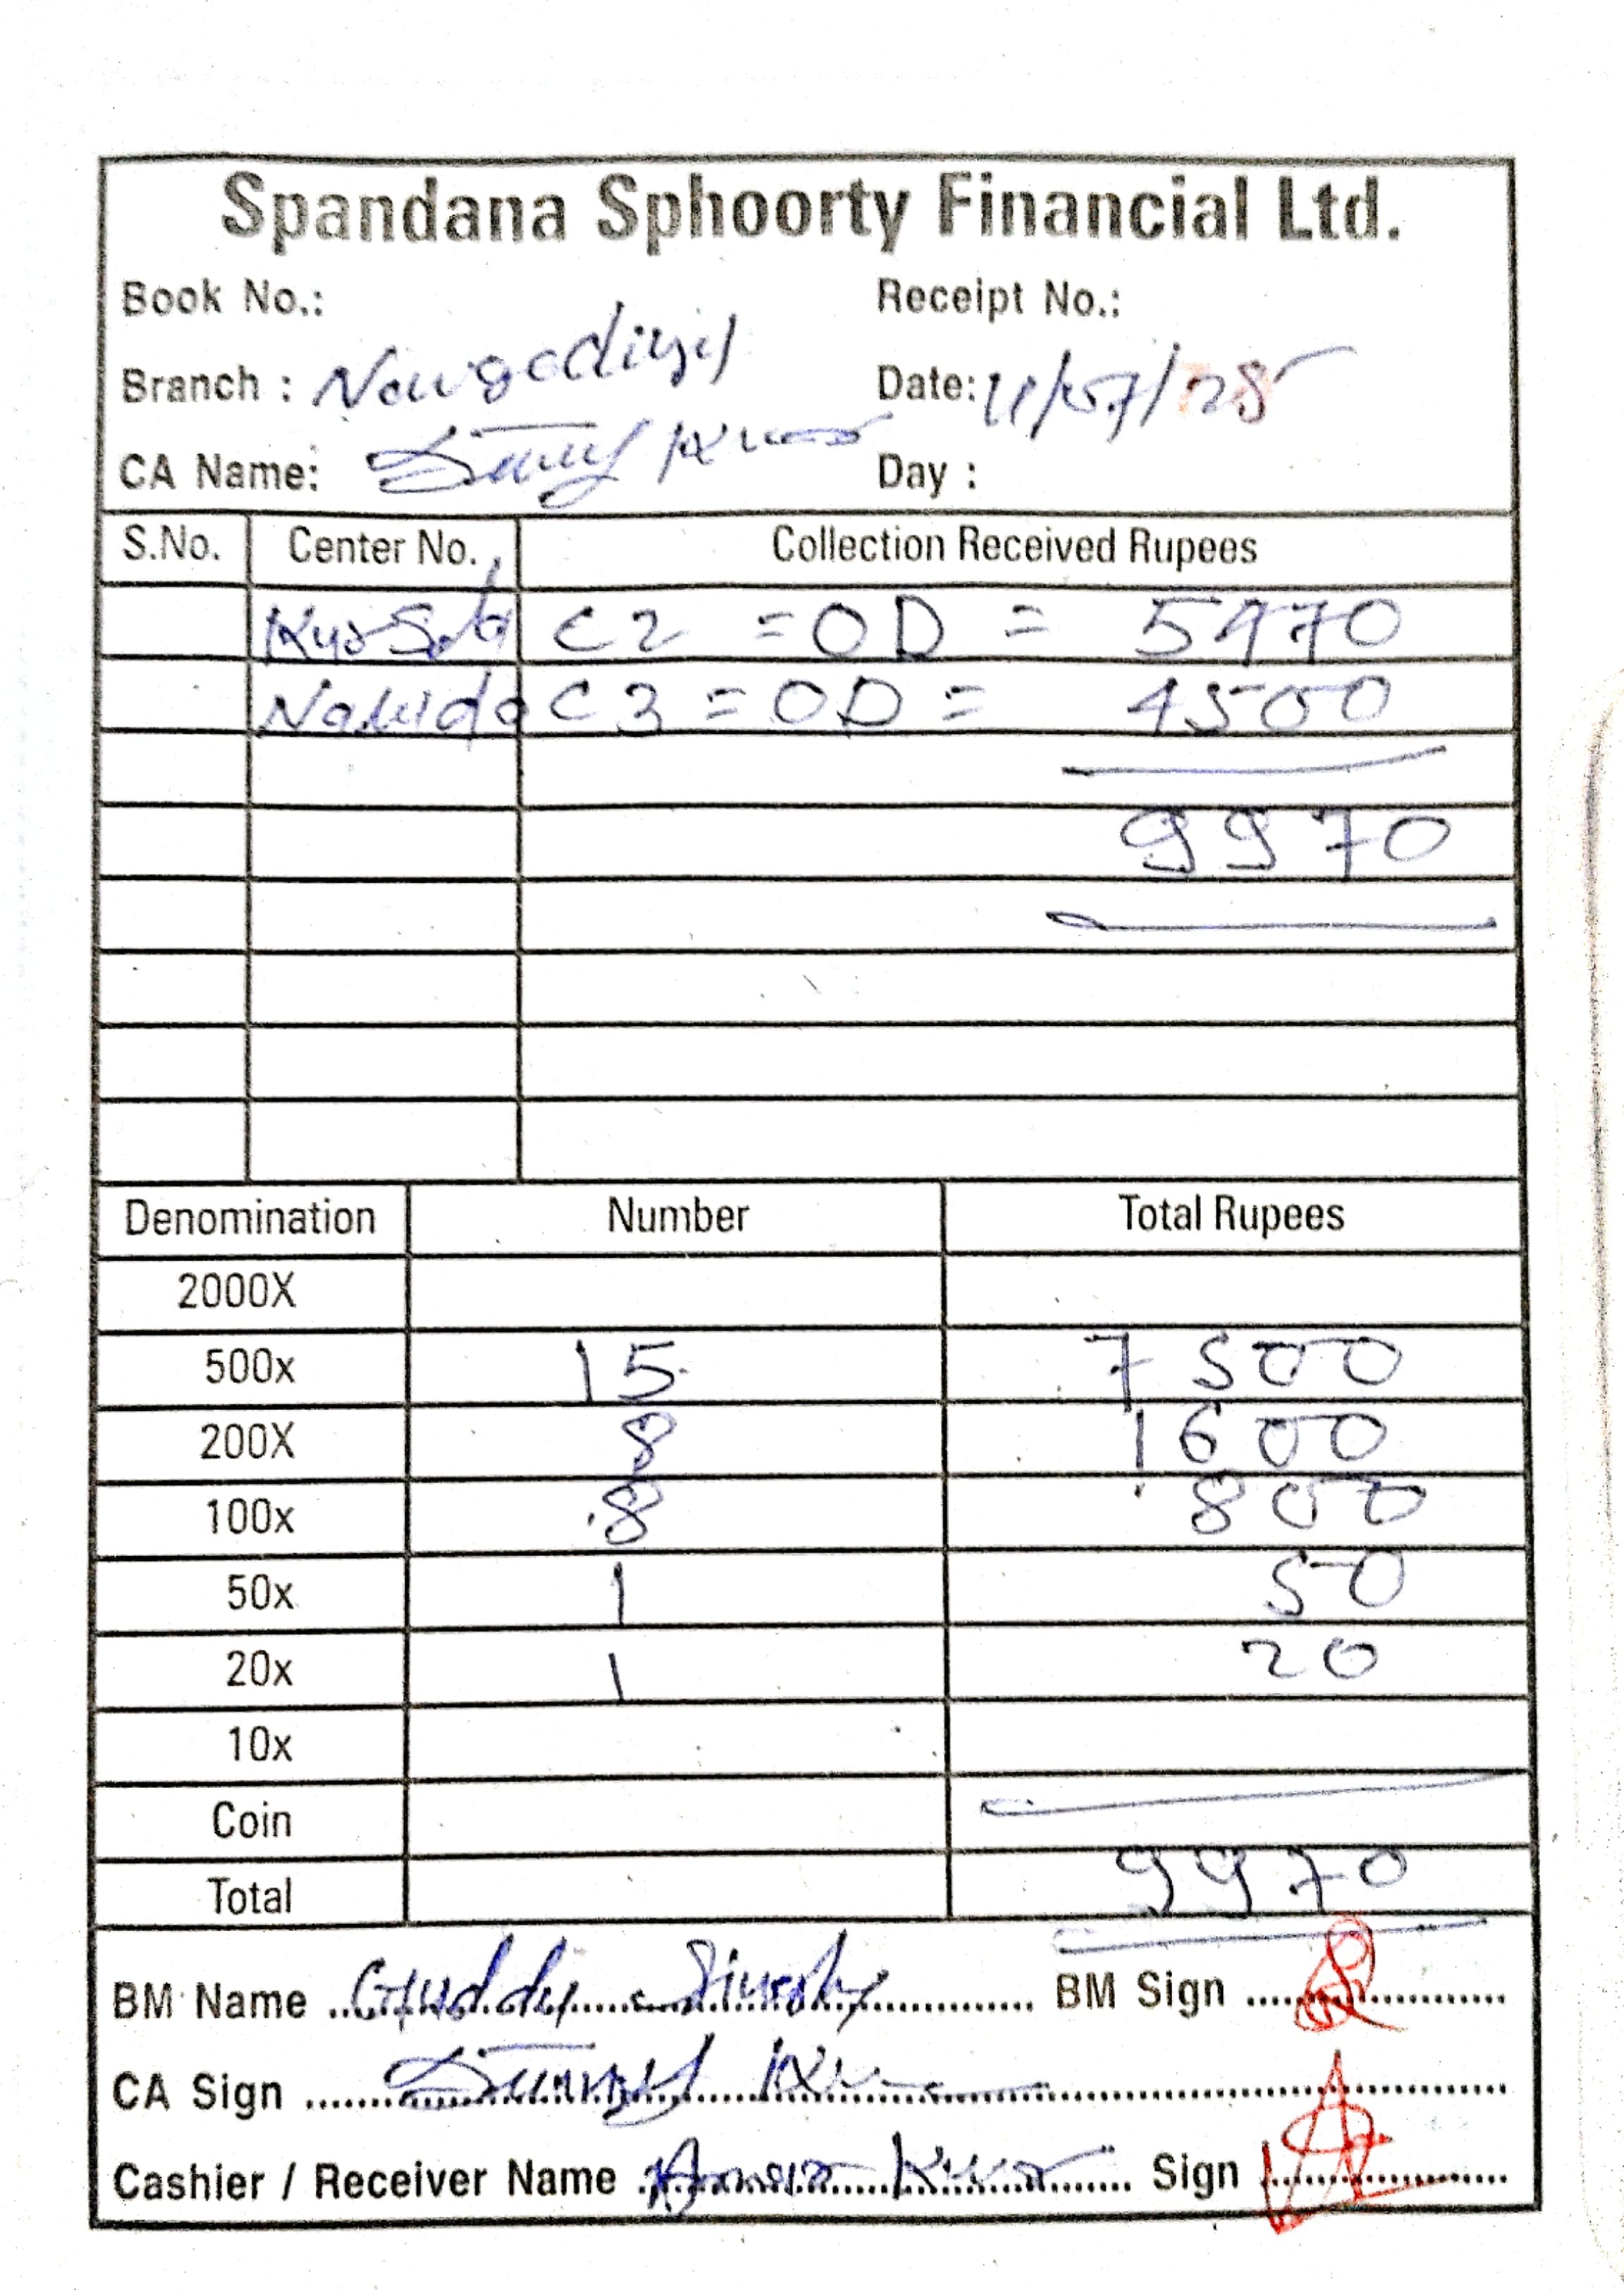 Spandana Sphoorty Financial Ltd.
Book No.: Receipt No.:
Branch : Date: 11/07/25
CA Name: Day :
S.No. Center No. Collection Received Rupees
C2 = OD = 5470
C3 = OD = 4500
9970
Denomination Number Total Rupees
2000X
500x 15 7500
200X 8 1600
100x 8 800
50x 1 50
20x 1 20
10x
Coin
Total 9970
BM Name Guddy BM Sign
CA Sign
Cashier / Receiver Name Sign